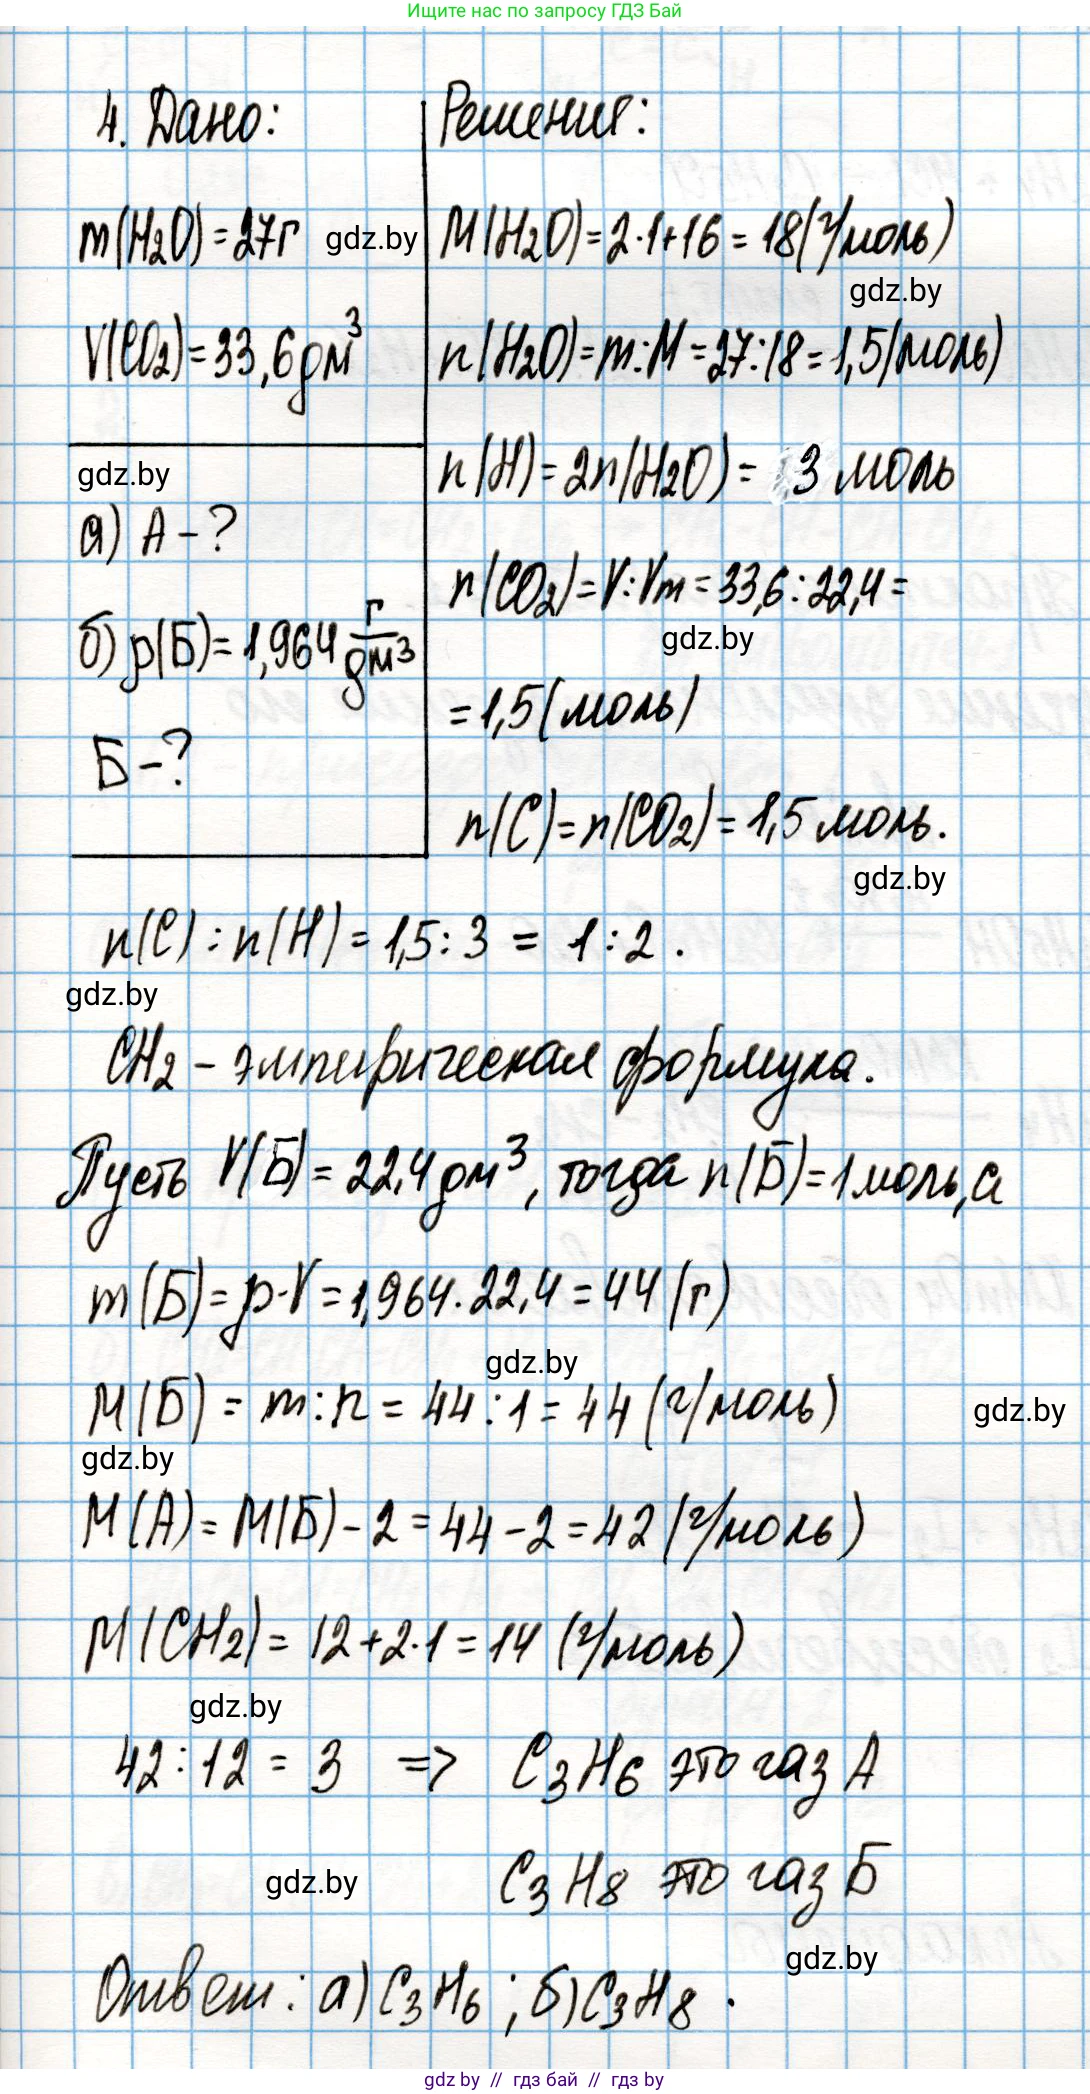 Ищите нас по запросу ГДЗ Бай
4. Дано:
m(H₂O)=27г gdz.by
V(CO₂)=33,6дм³
gdz.by
а) А-?
б) ρ(Б)=1,964 г/дм³
Б-?
Решения:
M(H₂O)=2·1+16=18(г/моль)
gdz.by
n(H₂O)=m:M=27:18=1,5(моль)
n(H)=2n(H₂O)= 3 моль
n(CO₂)=V:Vm=33,6:22,4=
gdz.by
=1,5(моль)
n(C)=n(CO₂)=1,5 моль.
gdz.by
n(C):n(H)=1,5:3 = 1:2.
gdz.by
CH₂ - эмпирическая формула.
Пусть V(Б)=22,4дм³, тогда n(Б)=1моль, а
m(Б)=ρ·V=1,964·22,4=44(г)
gdz.by
M(Б)=m:n=44:1=44(г/моль)
gdz.by
gdz.by
M(А)=M(Б)-2=44-2=42(г/моль)
M(CH₂)=12+2·1=14(г/моль)
gdz.by
42:12=3 => C₃H₆ это газ А
gdz.by C₃H₈ это газ Б
gdz.by
Ответ: а)C₃H₆; б)C₃H₈.
gdz.by // гдз бай // gdz.by